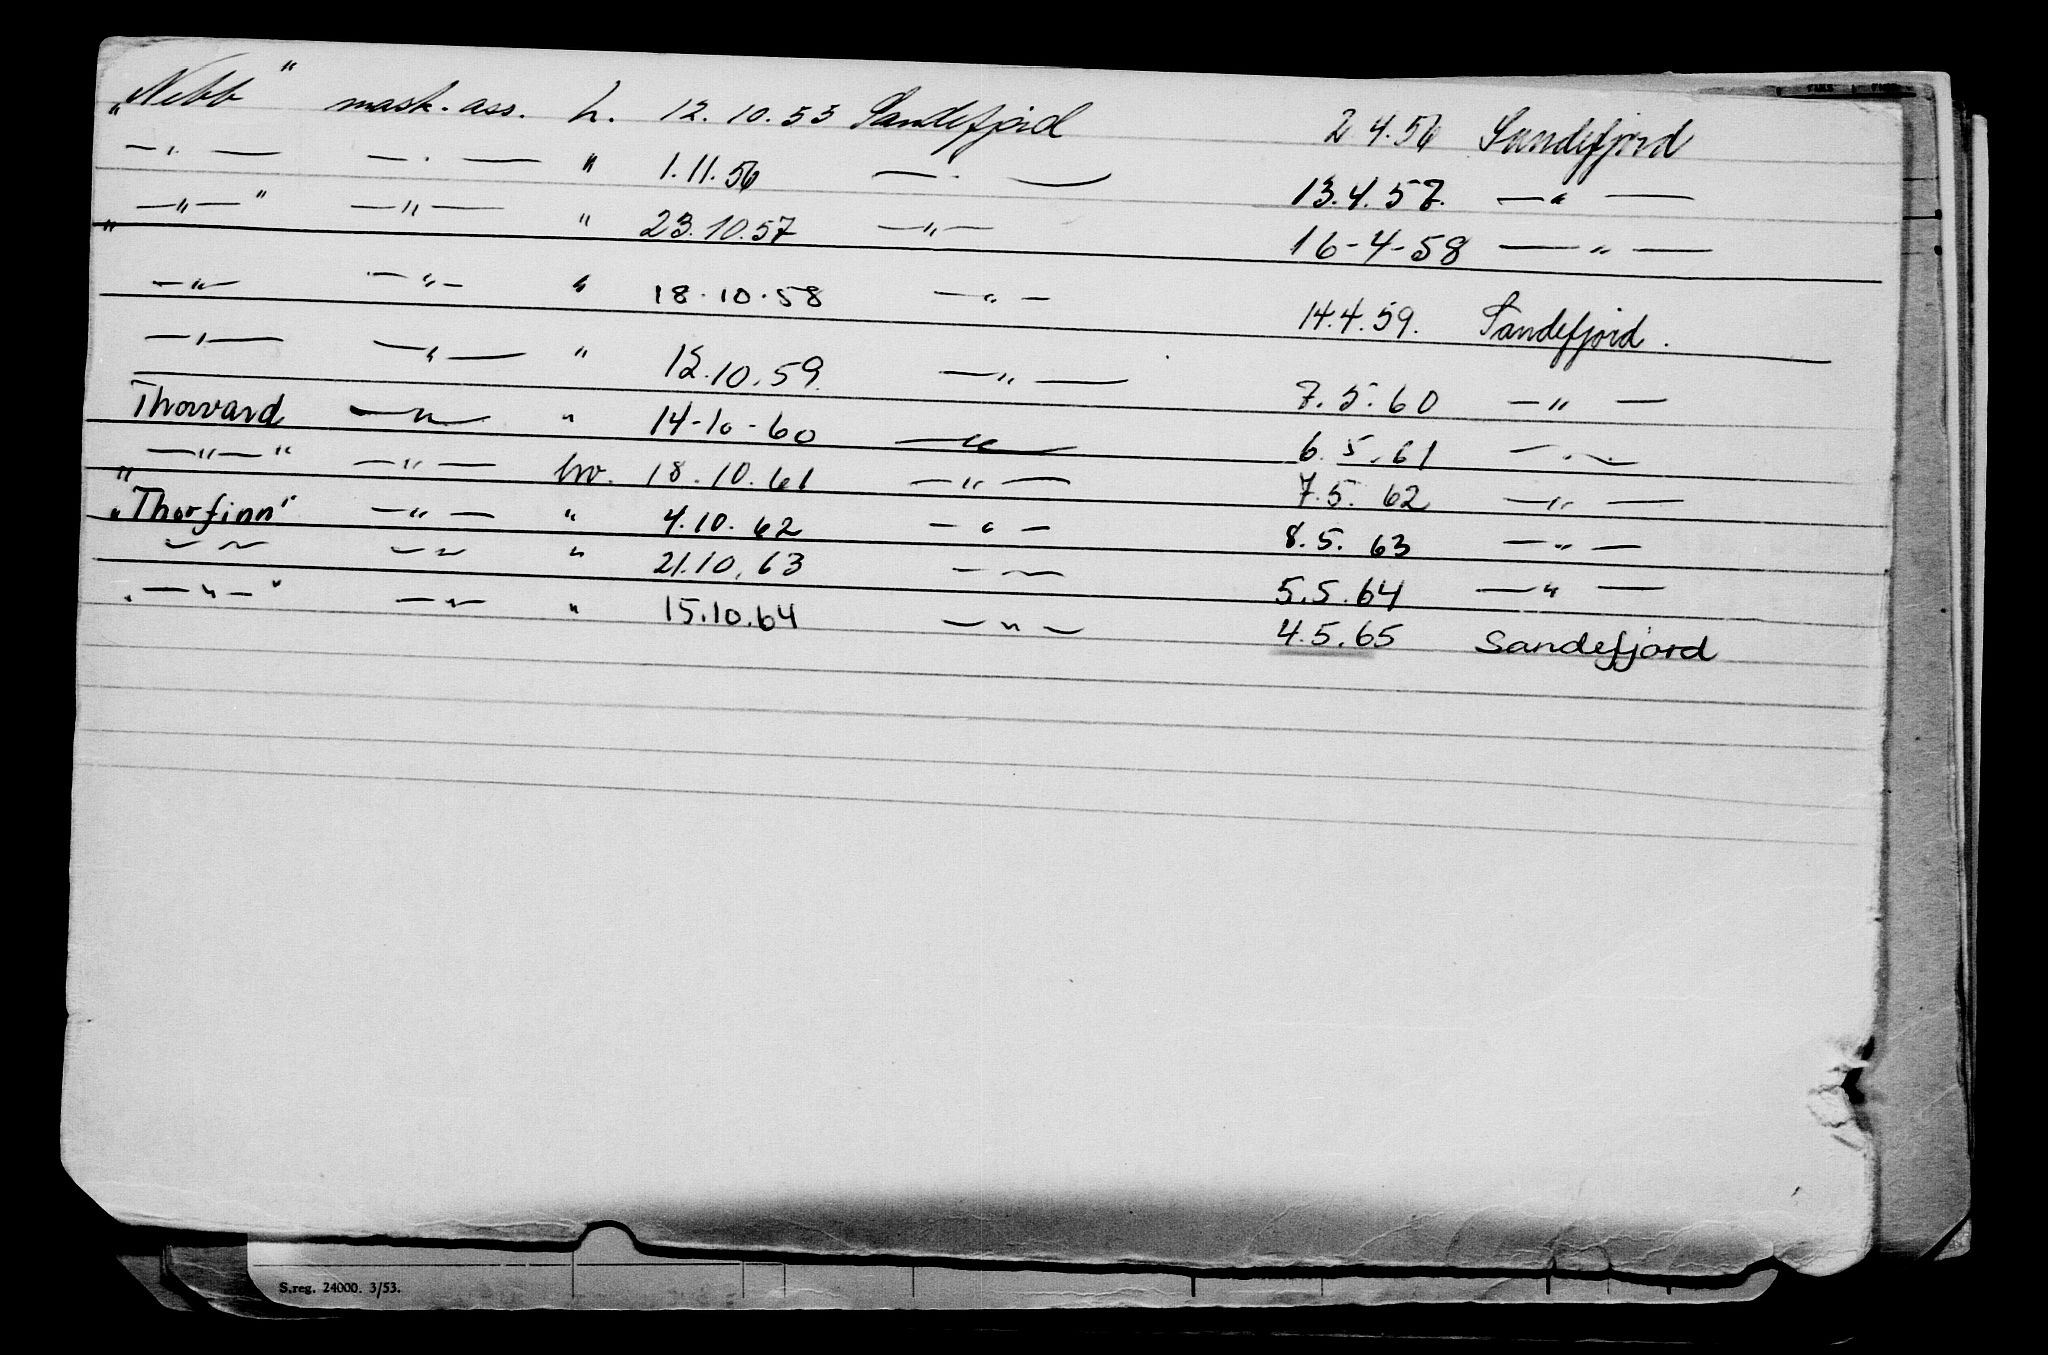 „Nebb" mask. ass. h. 12.10.53 Sandefjord 2 4.56 Sandefjord
— . — — . — " 1.11.56 — . — 13.4.57. — " —
„ — " — " — " — " 23.10.57 — " — 16-4-58 — " —
— " — — " — " 18.10.58 — " — 14.4.59. Sandefjord.
— " — — " — " 12.10.59. — " — 7.5.60 — " —
Thorvard — " — " 14-10-60 — " — 6.5.61 — " —
„ — " — " — " — hv. 18.10.61 — " — 7.5.62 — " —
„Thorfinn" — " — " 4.10.62 — " — 8.5.63 — " —
— " — — " — " 21.10.63 — " — 5.5.64 — " —
„ — " — " — " — " 15.10.64 — " — 4.5.65 Sandefjord
S.reg. 24000. 3/53.